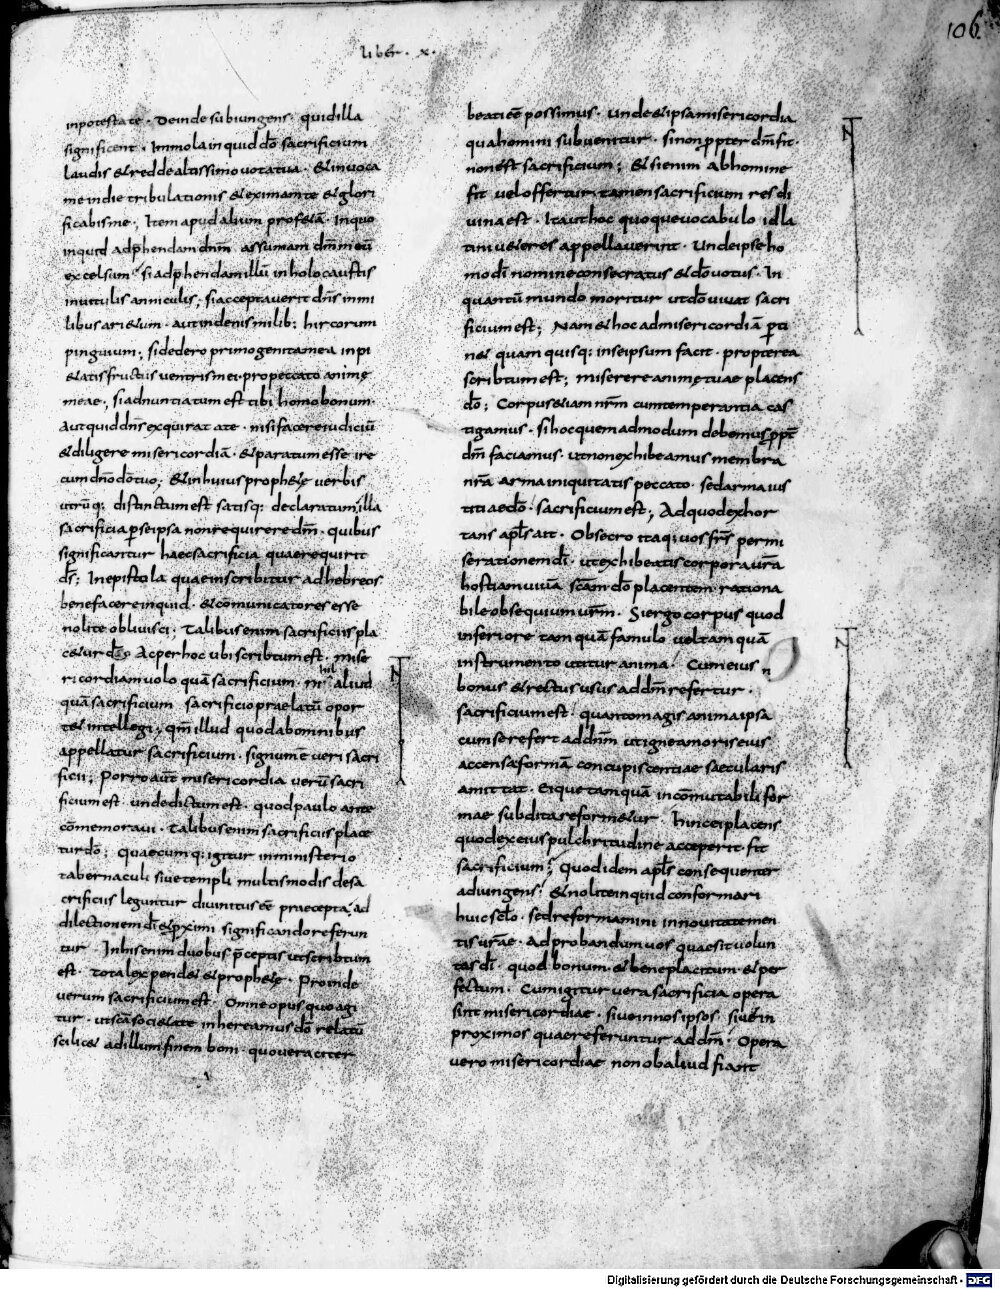 liber · x ·
106.
inpotestate · Deinde subiungens quidilla
significent · Immola inquid dō sacrificium
laudis & redde altissimo uota tua · & inuoca
me indie tribulationis & eximam te & glori
ficabis me · Item apud alium prof&ā · Inquo
inquid adp̄hendam dn̄m assumam dm̄ meū
excelsum si adp̄hendam illū in holocaustis
inuitulis anniculis ; si acceptauerit dn̄s inmi
libus ari&um · aut indenis milib; hircorum
pinguium ; si dedero primogenita mea inpi
&atis fructus uentris mei propeccato animę
meae ; si adnuntiatum est tibi homo bonum ·
Aut quid dn̄s exquirat a te · nisi facere iudiciū
& diligere misericordiā · & paratum esse ire
cum dn̄o dō tuo ; & inhuius proph&ę uerbis
utrūq; distinctum est satisq; declaratum illa
sacrificia p̱ se ipsa non requirere dm̄ · quibus
significantur haec sacrificia quae requirit
ds̄ ; In epistola quae inscribitur ad hebreos
benefacere inquid · & cōmunicatores esse
nolite obliuisci · Talibus enim sacrificiis pla
c&ur dō · Ac per hoc ubi scriptum est · mise
ricordiam uolo quā sacrificium · nihil aliud
quā sacrificium sacrificio praelatū opor
t& intellegi ; qm̄ illud quod abominibus
appellatur sacrificium · signum ē ueri sacri
ficii ; Porro aut̄ misericordia uerū sacri
ficium est · unde dictum est · quod paulo ante
cōmemoraui · Talibus enim sacrificiis place
tur dō ; Quaecumq; igitur inministerio
tabernaculi siue templi multis modis de sa
crificiis leguntur diuinitus eē praecepta ad
dilectionem dī & p̱ximi significando referun
tur · Inhis enim duobus p̄ceptis ut scribtum
est · tota lex pend& & proph&ę · Proinde
uerum sacrificium est · Omne opus quo agi
tur · ut scā soci&ate inhereamus dō relatū
scilic& ad illum finem boni · quo ueraciter
beati eē possimus · Unde & ipsa misericordia
qua homini subuenitur · si non p̱pter dm̄ fit ·
non est sacrificium ; & si enim ab homine
fit uel offertur tamen sacrificium res di
uina est · Ita ut hoc quoque uocabulo id la
tini u&eres appellauerint · Unde ipse ho
mo dī nomine consecratus & dō uotus · In
quantū mundo moritur ut dō uiuat sacri
ficium est ; Nam & hoc ad misericordiā p̱ti
n& quam quisq; in se ipsum facit · propterea
scribtum est ; miserere animę tuae placens
dō ; Corpus &iam nr̄m cum temperantia cas
tigamus · si hoc quem admodum debemus p̱pt̄
dm̄ faciamus · ut non exhibeamus membra
nr̄a arma iniquitatis peccato · sed arma ius
titiae dō · sacrificium est ; Ad quod exhor
tans apl̄s ait · Obsecro itaq; uos frs̄ per mi
serationem dī · ut exhibeatis corpora ur̄a
hostiam uiuā scām dō placentem · rationa
bile obsequium ur̄m · Si ergo corpus quod
inferiore tam quā famulo uel tam quā
instrumento utitur anima · Cum eius
bonus & rectus usus ad dm̄ refertur ·
sacrificium est · quanto magis anima ipsa
cum se refert ad dm̄ ut igne amoris eius
accensa formā concupiscentiae saecularis
amittat · Eique tam quā incōmutabili for
mae subdita reform&ur · hinc ei placens
quod ex eius pulchritudine acceperit fit
sacrificium ; Quod idem apl̄s consequenter
adiungens · & nolite inquid conformari
huic sclo · sed reformamini innouitate men
tis ur̄ae · Ad probandum uos quae sit uolun
tas dī · quod bonum & beneplacitum & per
fectum · Cum igitur uera sacrificia opera
sint misericordiae · siue innos ipsos · siue in
proximos quae referuntur ad dm̄ · Opera
uero misericordiae non ob aliud fiant
Digitalisierung gefördert durch die Deutsche Forschungsgemeinschaft - DFG